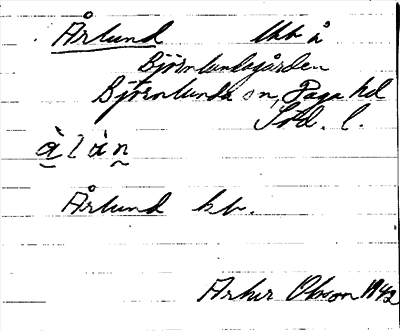 Årlund lbb å
Björnlundagården
Björnlunda sn, Daga hd
Söd. l.
à l à n
Årlund kb.
Arkiv Olsson 1942